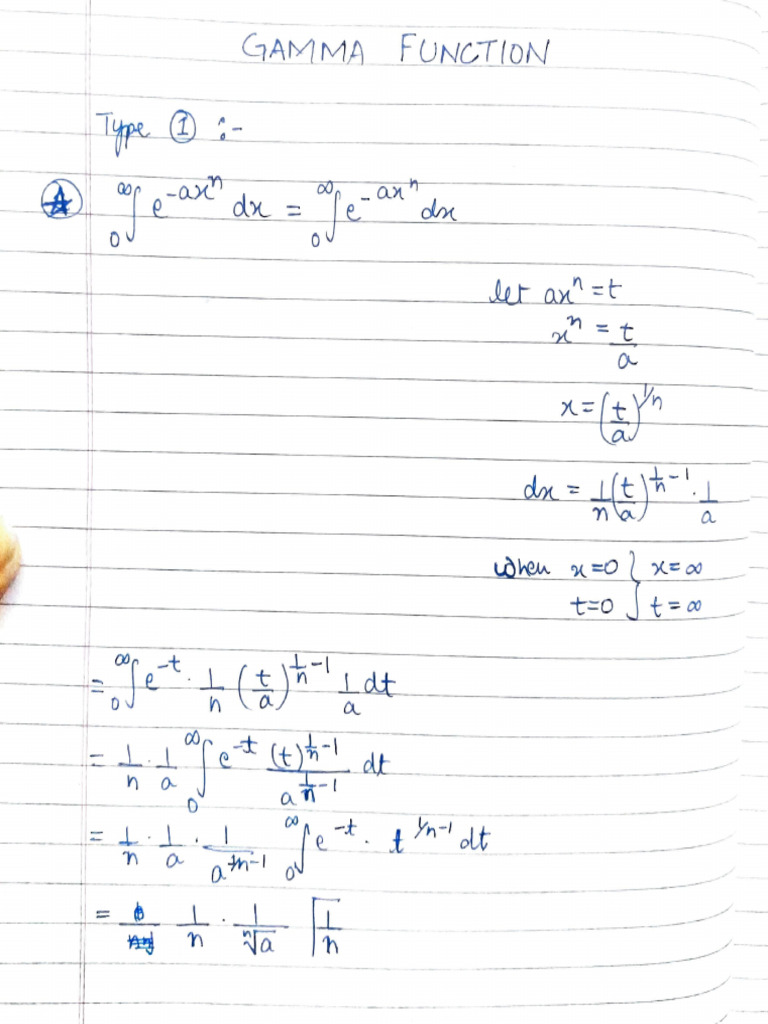 GAMMA FUNCTION
Type ① :-
∞∫0 e^-ax^n dx = ∞∫0 e^-ax^n dx
let ax^n = t
x^n = t/a
x = (t/a)^1/n
dx = 1/n (t/a)^(1/n - 1) . 1/a
when x=0 } x=∞
t=0 } t=∞
= ∞∫0 e^-t . 1/n (t/a)^(1/n - 1) 1/a dt
= 1/n . 1/a ∞∫0 e^-t (t)^(1/n - 1) / a^(1/n - 1) dt
= 1/n . 1/a . 1/a^(1/n - 1) ∞∫0 e^-t . t^(1/n - 1) dt
= 1/n . 1/ⁿ√a Γ1/n